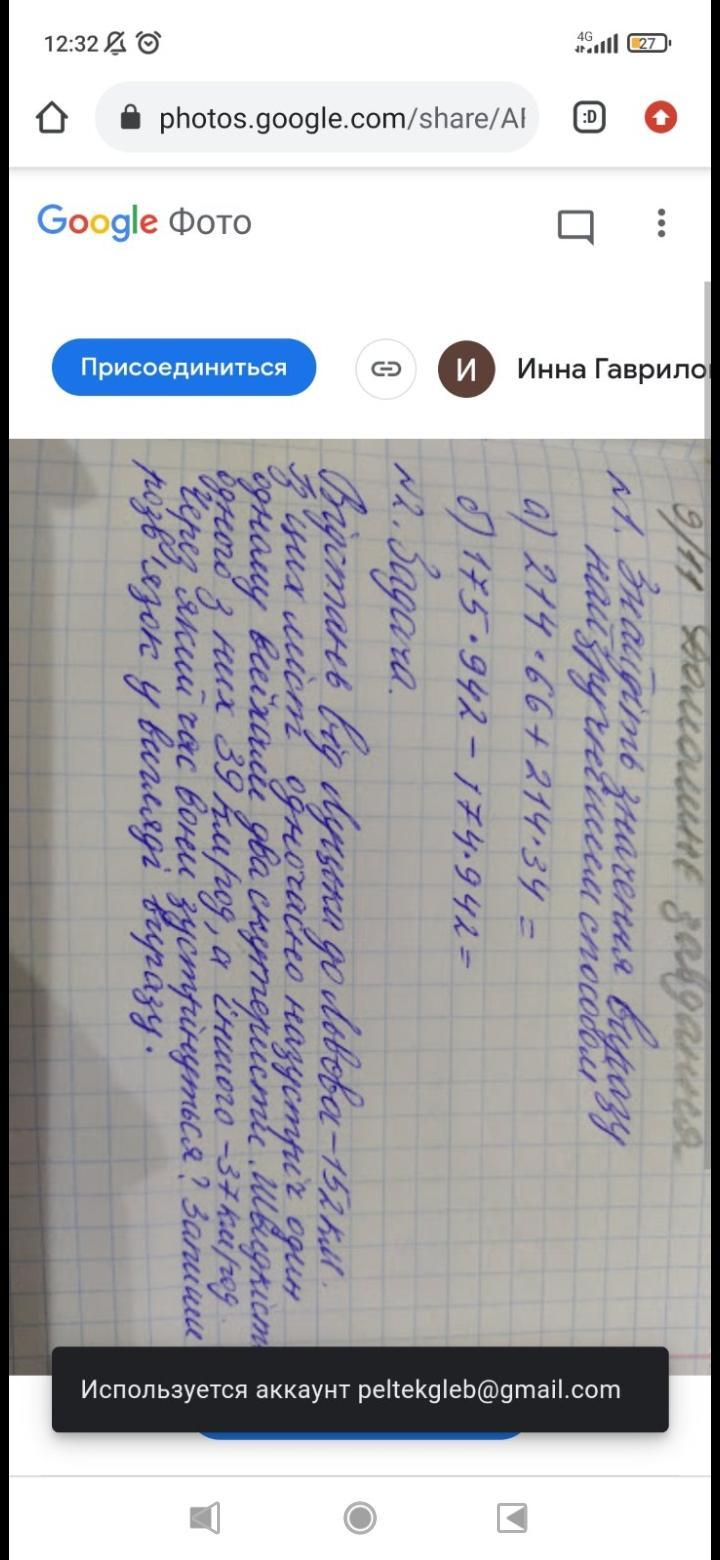 12:32
4G
27
photos.google.com/share/AF
:D
Google Фото
Присоединиться
И
Инна Гаврило
9/11 домашнє завдання
№1. Знайдіть значення виразу
найзручнішим способом
а) 214·66+214·34=
б) 175·942-174·942=
№2. Задача.
Відстань від Луцька до Львова-152км.
Із цих міст одночасно назустріч один
одному виїхали два скутеристи. Швидкість
одного з них 39км/год, а іншого -37км/год.
Через який час вони зустрінуться? Запиши
розв'язок у вигляді виразу.
Используется аккаунт peltekgleb@gmail.com